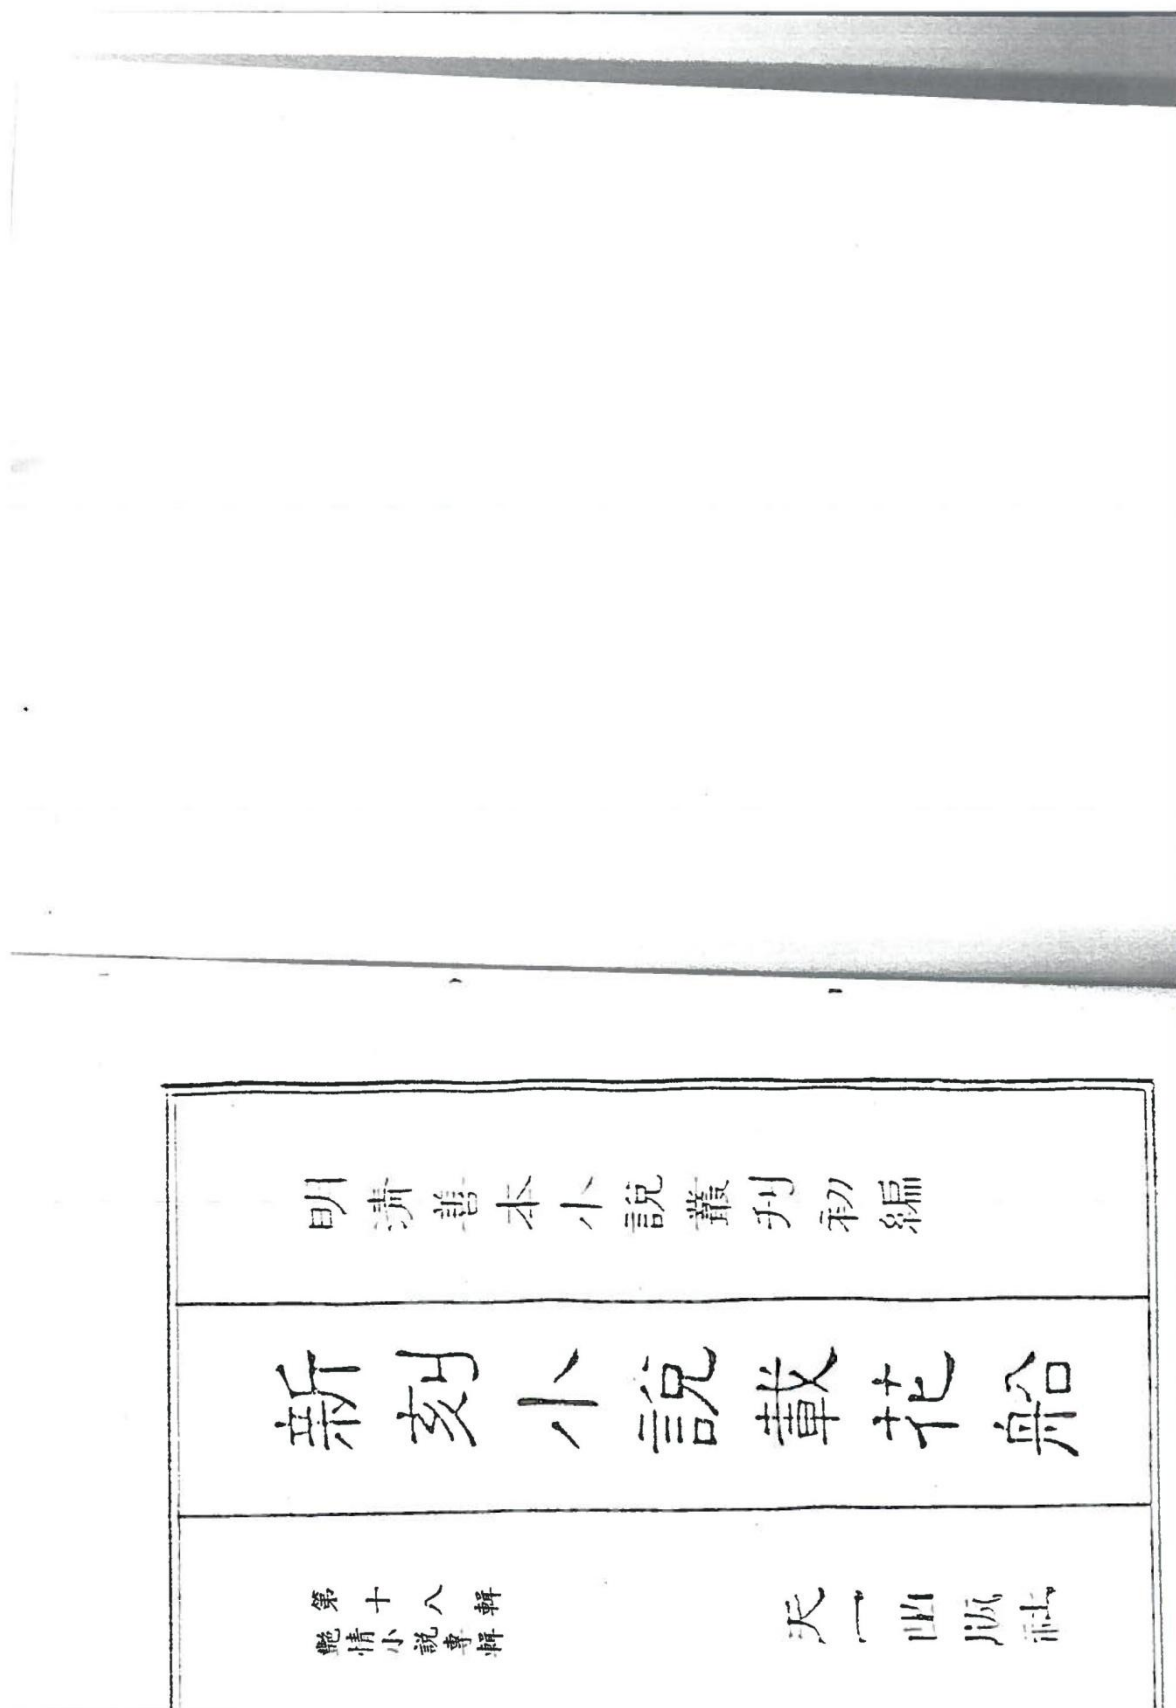 明清善本小說叢刊初編
新刻小說載花船
第十八輯
艷情小說專輯
天一出版社